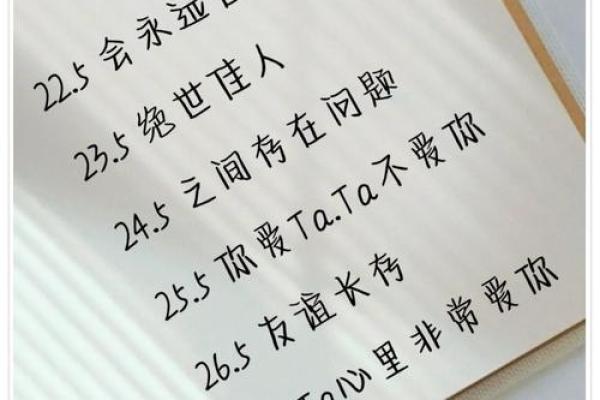 22.5 会永远
23.5 绝世佳人
24.5 之间存在问题
25.5 你爱Ta.Ta不爱你
26.5 友谊长存
Ta心里非常爱你